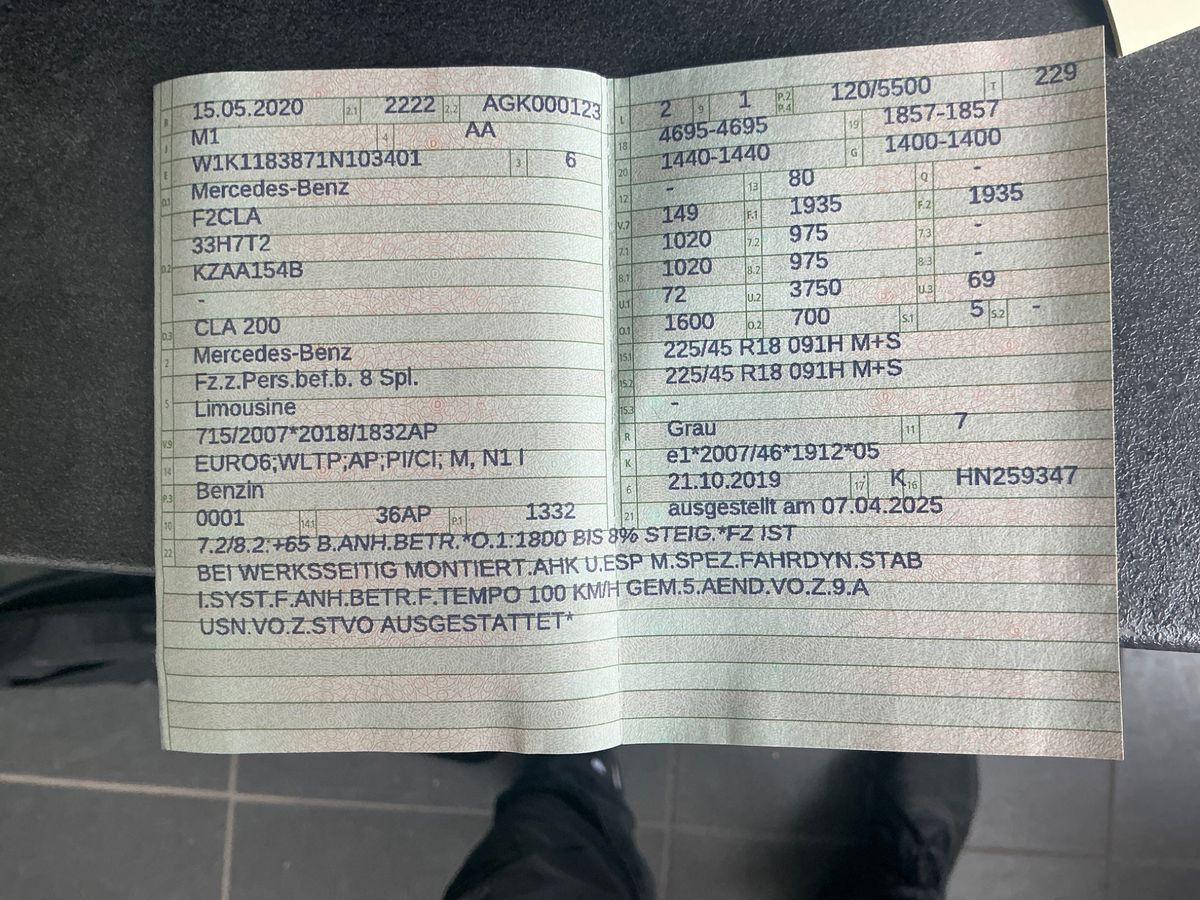 B 15.05.2020 2.1 2222 2.2 AGK000123
J M1 4 AA
E W1K1183871N103401 3 6
D.1 Mercedes-Benz
F2CLA
33H7T2
D.2 KZAA154B
-
D.3 CLA 200
2 Mercedes-Benz
Fz.z.Pers.bef.b. 8 Spl.
5 Limousine
V.9 715/2007*2018/1832AP
14 EURO6;WLTP;AP;PI/CI; M, N1 I
P.3 Benzin
10 0001 14.1 36AP P.1 1332
L 2 9 1 P.2 P.4 120/5500 T 229
18 4695-4695 19 1857-1857
20 1440-1440 G 1400-1400
12 - 13 80 Q -
V.7 149 F.1 1935 F.2 1935
7.1 1020 7.2 975 7.3 -
8.1 1020 8.2 975 8.3 -
U.1 72 U.2 3750 U.3 69
O.1 1600 O.2 700 S.1 5 S.2 -
15.1 225/45 R18 091H M+S
15.2 225/45 R18 091H M+S
15.3 -
R Grau 11 7
K e1*2007/46*1912*05
6 21.10.2019 17 K 16 HN259347
21 ausgestellt am 07.04.2025
22 7.2/8.2:+65 B.ANH.BETR.*O.1:1800 BIS 8% STEIG.*FZ IST
BEI WERKSSEITIG MONTIERT.AHK U.ESP M.SPEZ.FAHRDYN.STAB
I.SYST.F.ANH.BETR.F.TEMPO 100 KM/H GEM.5.AEND.VO.Z.9.A
USN.VO.Z.STVO AUSGESTATTET*